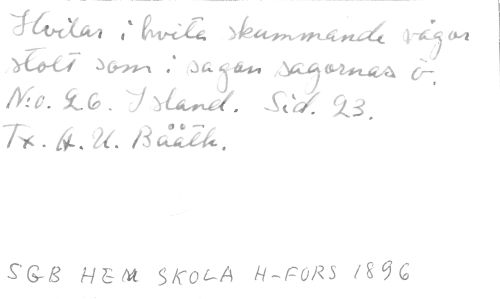 Hvilar i hvita skummande vågor
stolt som i sagan sagornas ö.
N:o. 26. Island. Sid. 23.
Tx. A. U. Bååth.
SGB HEM SKOLA H-FORS 1896